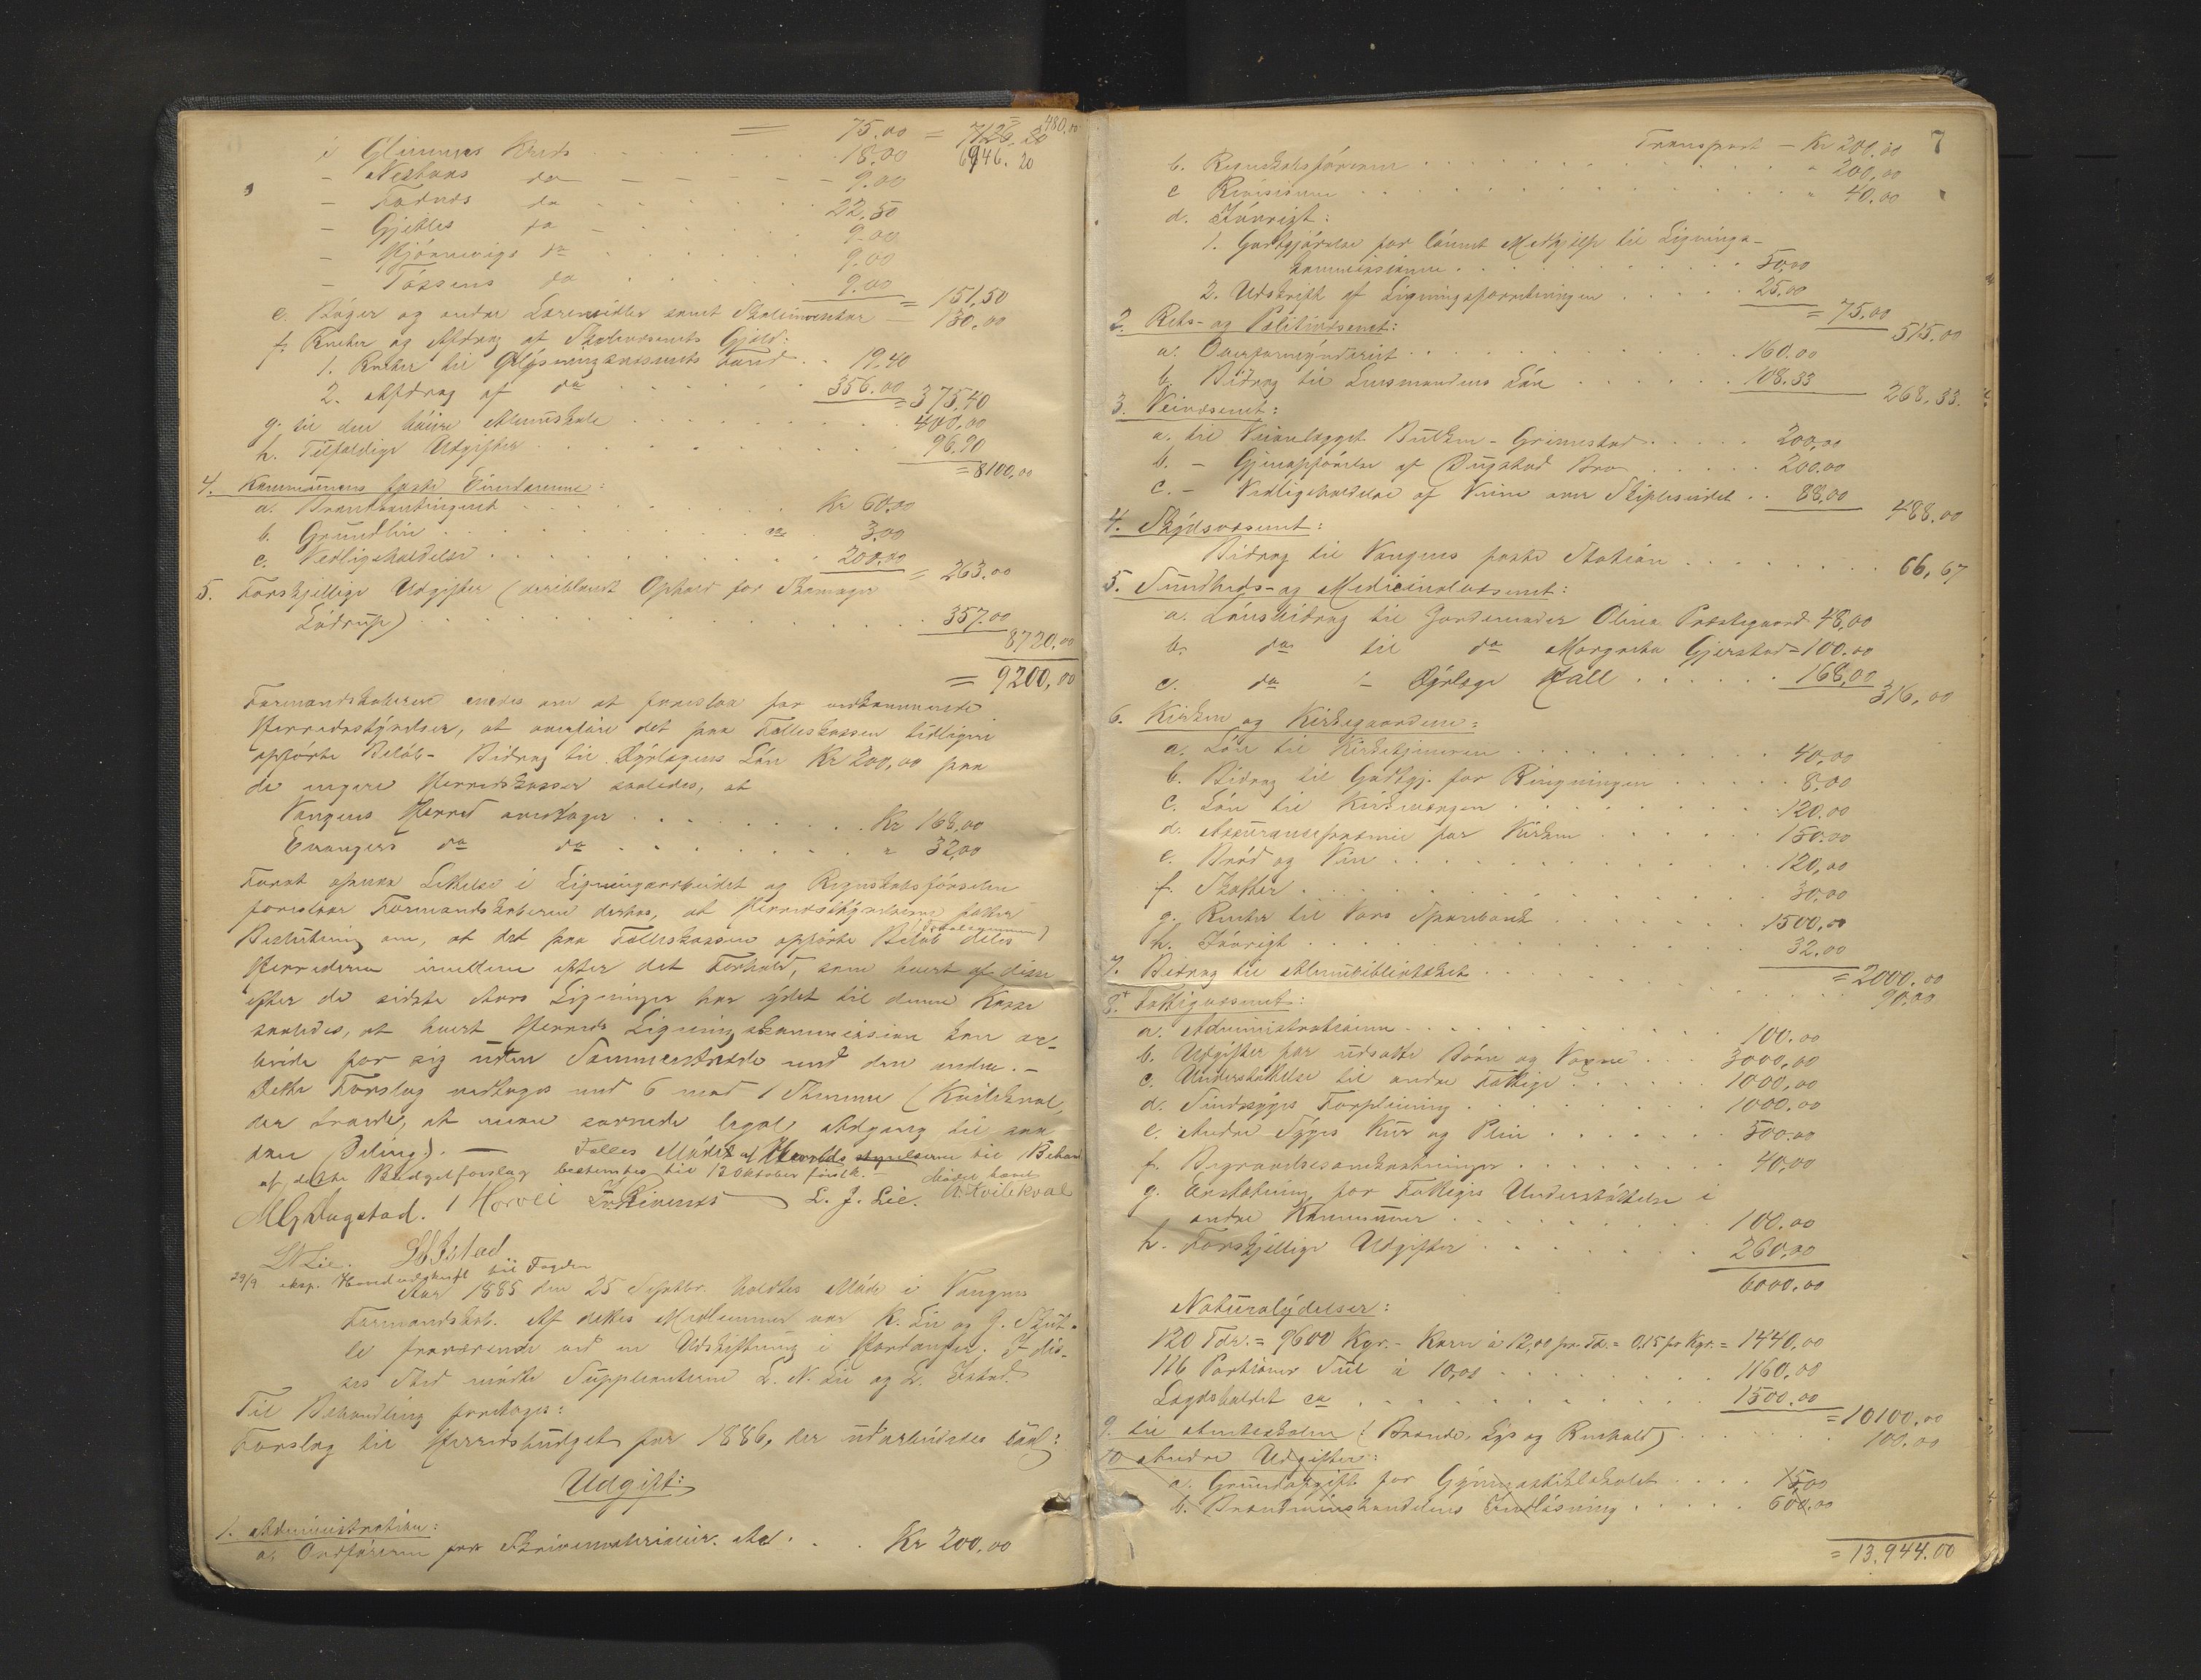 = 75.00 = 7126.20 480,00
i Glimmes Kreds . . . 18.00 6946.20
- Nesthus do - - - 9.00
- Fadnes do . . . 22,50
- Gjelles do - . . . 9.00
- Kjönnevigs do . . . 9.00
- Tössens do . . . 9.00 = 151,50
e. Böger og andre Læremidler samt Skoleinventar - 130,00
f. Renter og Afdrag af Skolevæsenets Gjæld:
1. Renter til Oplysningsvæsenets Fond . . 19.40
2. Afdrag af do . . . 356.00 = 375,40
g. til den höiere Almueskole . . . 400,00
h. Tilfældige Udgifter . . . 96,90
= 8100,00
4. Kommunens faste Eiendomme:
a. Brandkontingent . . . Kr 60.00
b. Grundleie . . . ca 3.00
c. Vedligeholdelse . . . 200,00 = 263.00
5. Forskjellige Udgifter (deriblandt Ophold for Skomager
Lödrup) . . . 357.00
8720,00
= 9200,00
Formandskaberne enedes om at foreslaa for vedkommende
Herredsstyrelser, at overföre det paa Fælleskassen tidligere
opförte Belöb - Bidrag til Dyrlægens Lön Kr 200,00 paa
de egne Herredskasser saaledes, at
Vangens Herred overtager . . . Kr 168,00
Evangers do do . . . " 32,00
For at opnaa Lettelse i Ligningsarbeidet og Regnskabsförselen
foreslaar Formandskaberne derhos, at Herredsstyrelserne fatter
Beslutning om, at det paa Fælleskassen opförte Belöb (Totalsummen) deles
Herrederne imellem efter det Forhold, som hvert af disse
efter de sidste Aars Ligninger har ydet til denne Kasse
saaledes, at hvert Herreds Ligningskommission kan ar-
beide for sig uden Sammentræde med den anden. -
Dette Forslag vedtoges med 6 mod 1 Stemme (Kvilekval,
der troede, at man savnede legal Adgang til saa-
dan Deling). - Fælles Möde af Herredsstyrelserne til Behan
af dette Budgetforslag bestemtes til 12 Oktober förstk. - Mödet hævet
MGjukastad. I Horvei L. J. Lie. A. Kvilekval
L N Lie. S L Istad
29/9 eksp. Hovedudskrift til Fogden
Aar 1885 den 25 Septbr. holdtes Möde i Vangens
Formandskab. Af dettes Medlemmer var K. Lie og G. Skut-
le fraværende ved en Udskiftning i Hardanger. I dis-
ses Sted mödte Suppleanterne L. N. Lie og L. Istad.
Til Behandling foretoges:
Forslag til Herredsbudget for 1886, der udarbeidedes saal:
Udgift:
1. Administration:
a. Ordföreren for Skrivematerialier. etc. . . Kr 200,00
7
Transport - Kr 200.00
b. Regnskabsföreren . . . " 200,00
c Revisionen . . . " 40.00
d. Iövrigt:
1. Godtgjörelse for lönnet Medhjælp til Lignings-
kommissionen . . . 50,00
2. Udskrift af Ligningsforretningen . . . 25,00 = 75.00
515.00
2. Rets- og Politivæsenet:
a. Overformynderiet . . . 160.00
b. Bidrag til Lensmandens Lön . . . 108.33
268,33.
3. Veivæsenet:
a. til Veianlægget Bulken - Grimestad . . . 200,00
b. - Gjenopförelse af Bugstad Bro . . . 200.00
c. - Vedligeholdelse af Veien over Skiplesundet . . 88,00
488,00
4. Skydsvæsenet:
Bidrag til Vangens faste Station . . . 66,67
5. Sundheds- og Medicinalvæsenet:
a. Lönsbidrag til Jordemoder Olina Præstegaard 48,00
b. do til do Margreta Gjerstad = 100.00
c. do " - Dyrlæge Kall . . . 168,00
316,00
6. Kirken og Kirkegaardene:
a. Lön til Kirketjeneren . . . 40,00
b. Bidrag til Godtgj. for Ringningen . . . 8,00
c. Lön til Kirkesangen . . . 120.00
d. Assurancepræmie for Kirken . . . 150.00
e. Bröd og Vin . . . 120,00
f. Skatter . . . 30,00
g. Renter til Voss Sparebank . . . 1500,00
h. Iövrigt . . . 32.00
= 2000.00
7. Bidrag til Almuebibliotheket . . . 90,00
8. Fattigvæsenet:
a. Administrationen . . . 100.00
b. Udgifter for udsatte Börn og Voxne . . . 3000,00
c. Understöttelse til andre Fattige . . . 1000,00
d. Sindssyges Forpleining . . . 1000.00
e. Andre Syges Kur og Pleie . . . 500.00
f. Begravelsesomkostninger . . . 40,00
g. Erstatning for Fattiges Understöttelse i
andre Kommuner . . . 100.00
h. Forskjellige Udgifter . . . 260,00
6000.00
Naturalydelser:
120 Tdr. = 9600 Kgr. - Korn à 12,00 pr. Td. = 0.15 pr Kgr. = 1440,00
116 Portioner Sul à 10,00 . . . 1160,00
Lægdsholdet ca . . . 1500.00
= 10100,00
9. til Amtsskolen (Brænde, Lys og Renhold) . . . 100.00
10 Andre Udgifter:
a. Grundafgift for Gymnastiklokalet . . . 15,00
b. Brændevinshandelens Indlösning . . . 600.00
= 13.944.00